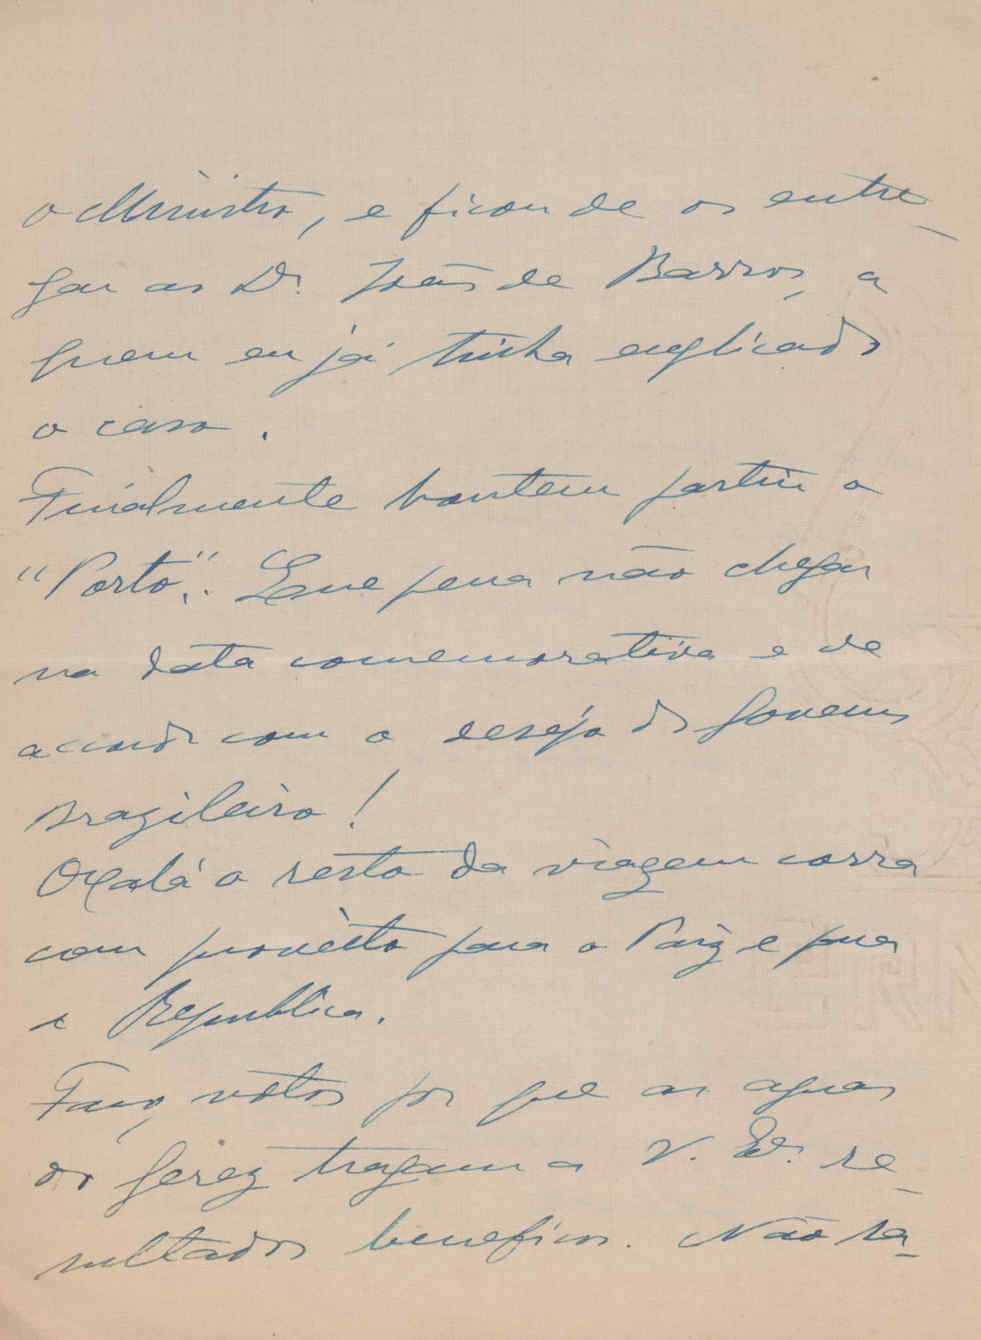 o Ministro, e ficou de os entre-
gar ao Dr. João de Barros, a
quem eu já tinha explicado
o caso.
Finalmente hontem partiu o
"Porto". Que pena não chegar
na data comemorativa e de
acordo com o desejo do Governo
Brazileiro!
Oxalá o resto da viagem corra
com proveito para o Paiz e para
a Republica.
Faço votos por que as aguas
do Gerez tragam a V. Exª. re-
sultados beneficos. Não sa-